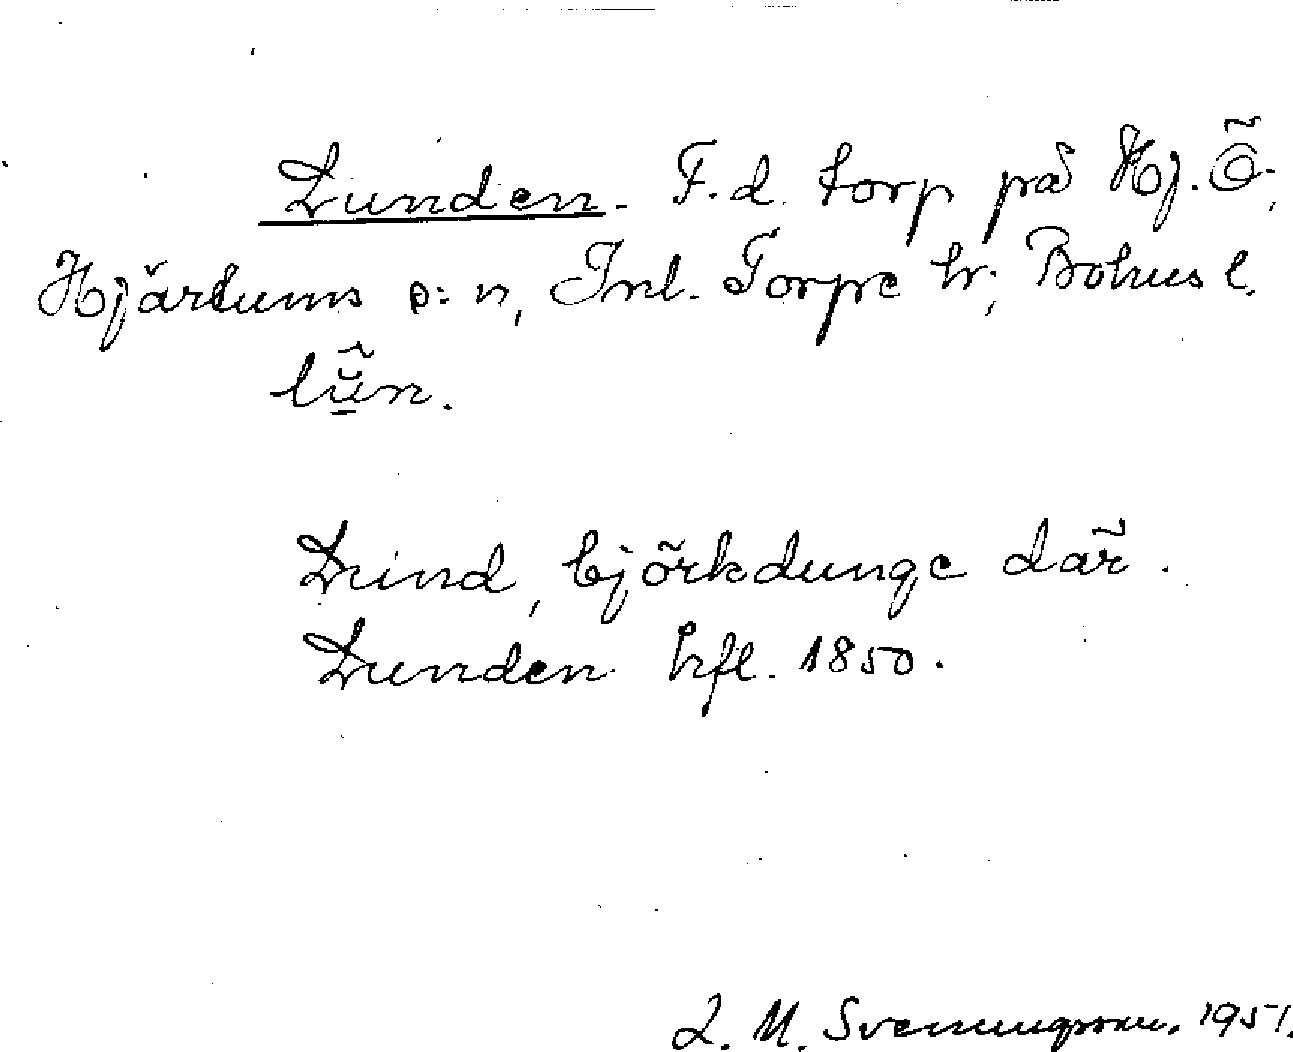 Lunden. F.d. torp på Hj. Ö.,
Hjärtums s:n, Inl. Torpe hr, Bohus l.
lŭ̃n.
Lund, björkdunge där.
Lunden hfl. 1850.
L. M. Svenungsson. 1951.